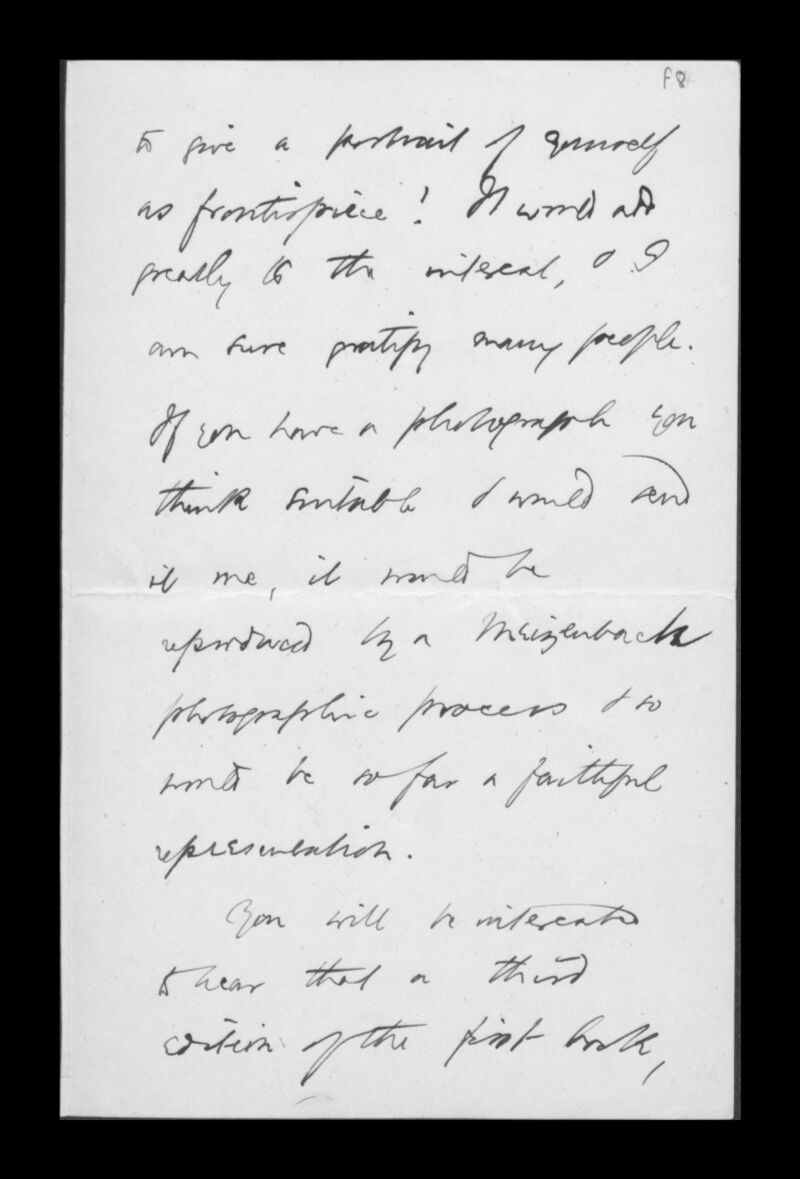 f8
to give a portrait of yourself
as frontispiece! It would add
greatly to the interest, & I
am sure gratify many people.
If you have a photograph you
think suitable & would send
it me, it would be
reproduced by a Meizenback
photographic process & so
would be so far a faithful
representation.
You will be interested
to hear that a third
edition of the first book,